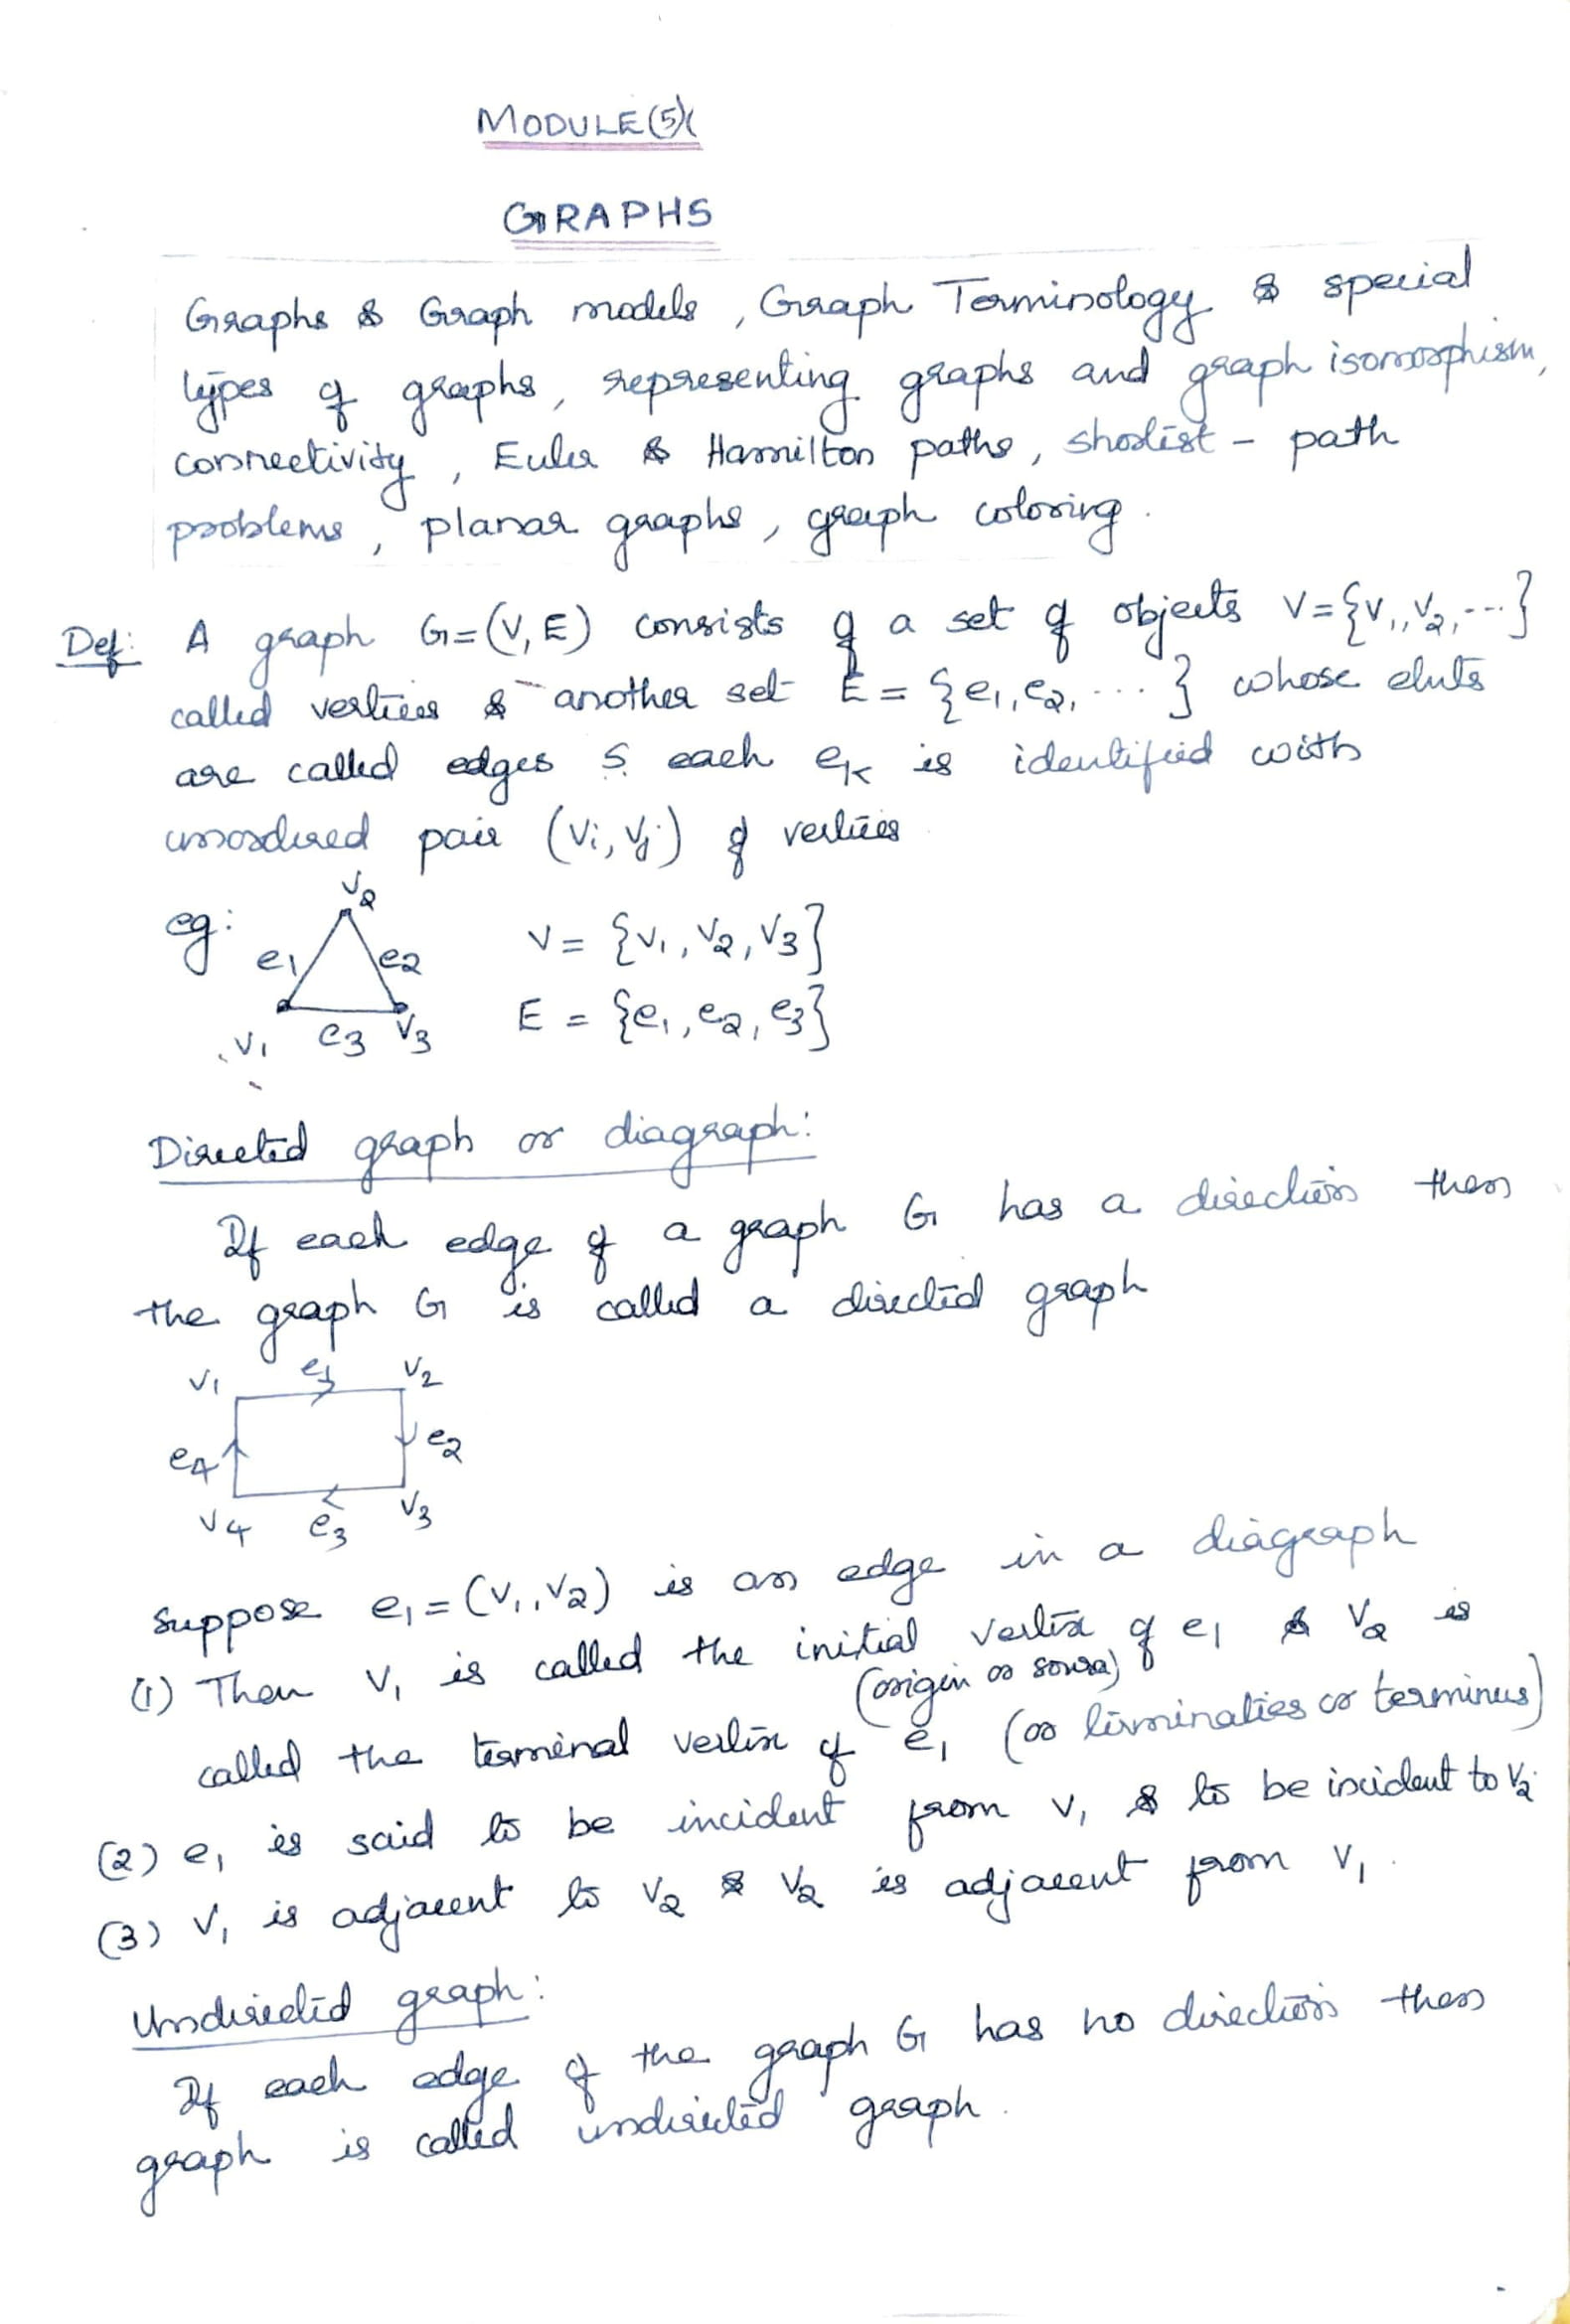 MODULE (5)
GRAPHS
Graphs & Graph models, Graph Terminology & special
types of graphs, representing graphs and graph isomorphism,
connectivity, Euler & Hamilton paths, shortest - path
problems, planar graphs, graph coloring.
Def: A graph G=(V,E) consists of a set of objects V={v₁,v₂,...}
called vertices & another set E = {e₁,e₂,...} whose elmts
are called edges s. each eₖ is identified with
unordered pair (vᵢ,vⱼ) of vertices
v₂
eg: e₁ e₂ V = {v₁,v₂,v₃}
v₁ e₃ v₃ E = {e₁,e₂,e₃}
Directed graph or diagraph:
If each edge of a graph G has a direction then
the graph G is called a directed graph
v₁ e₁ v₂
e₄ e₂
v₄ e₃ v₃
Suppose e₁=(v₁,v₂) is an edge in a diagraph
(1) Then v₁ is called the initial vertex of e₁ & v₂ is
(origin or source)
called the terminal vertex of e₁ (or terminaties or terminus)
(2) e₁ is said to be incident from v₁ & to be incident to v₂.
(3) v₁ is adjacent to v₂ & v₂ is adjacent from v₁.
Undirected graph:
If each edge of the graph G has no direction then
graph is called undirected graph.